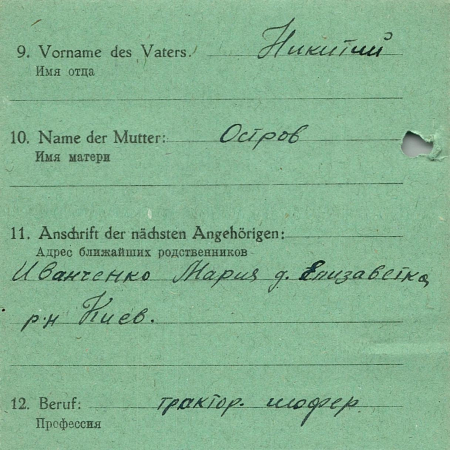 9. Vorname des Vaters: Никитий
Имя отца
10. Name der Mutter: Остров
Имя матери
11. Anschrift der nächsten Angehörigen:
Адрес ближайших родственников
Иванченко Мария д. Елизаветка,
р-н Киев.
12. Beruf: трактор. шофер
Профессия